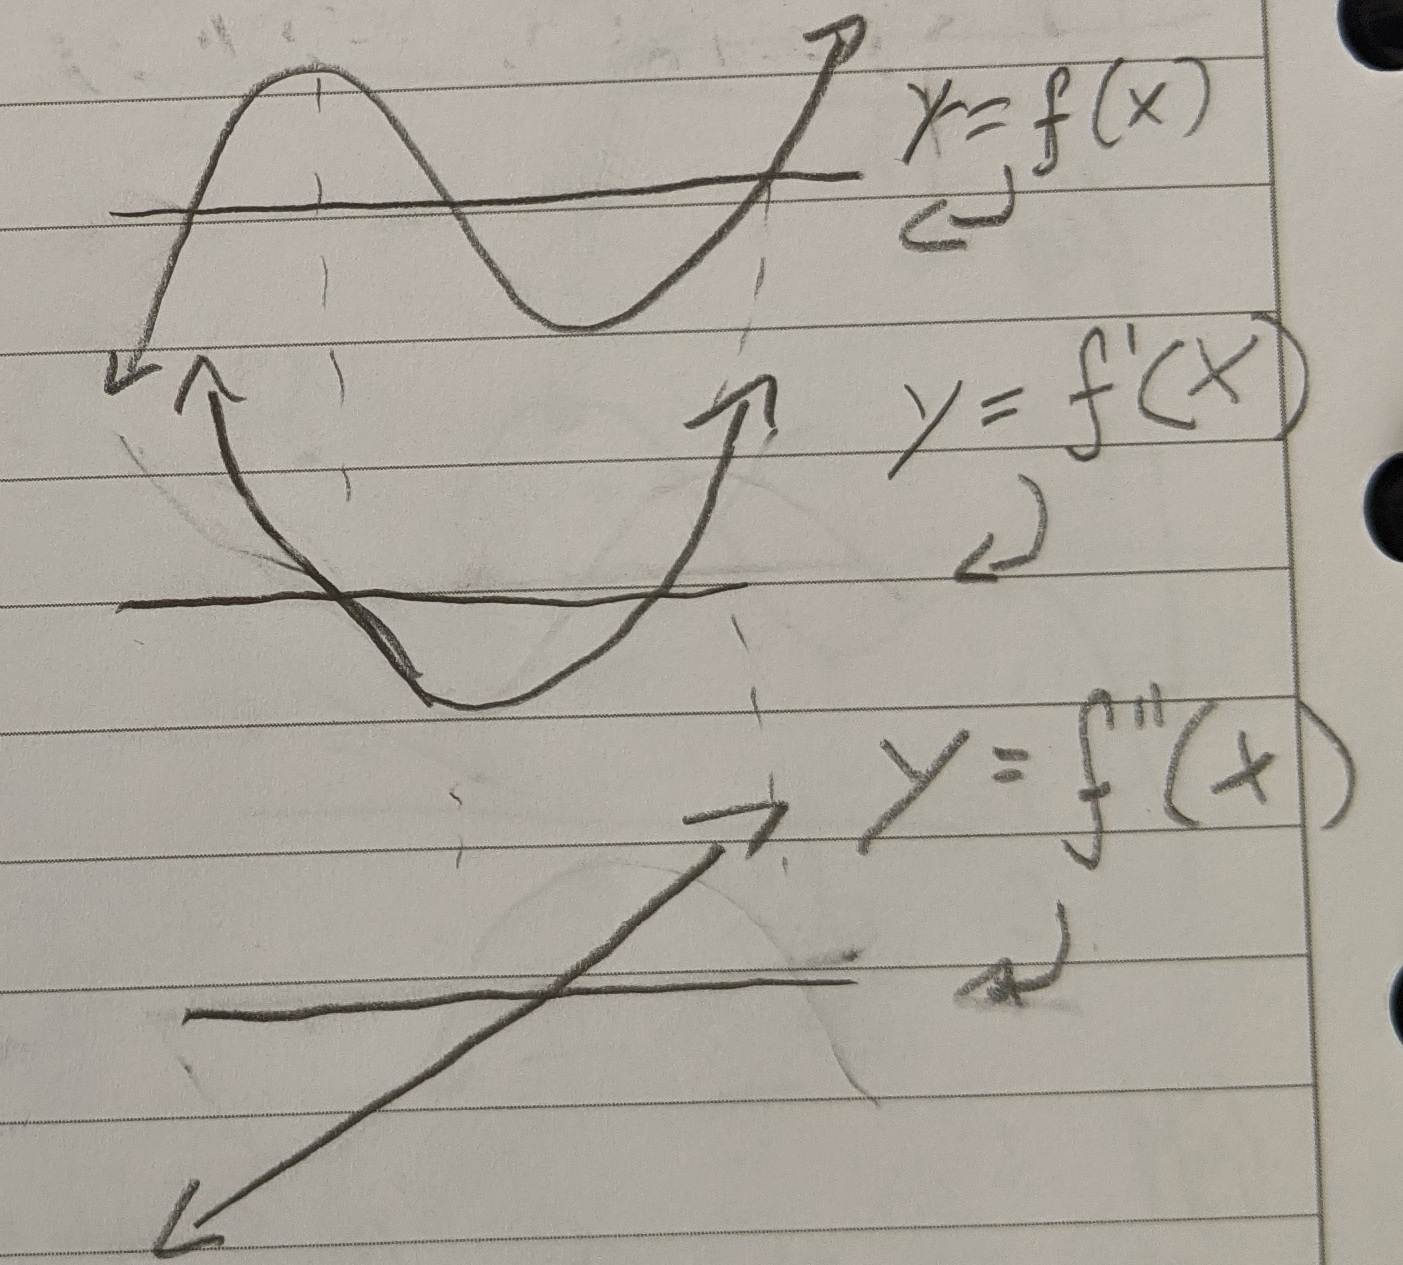 y = f(x)
y = f'(x)
y = f''(x)